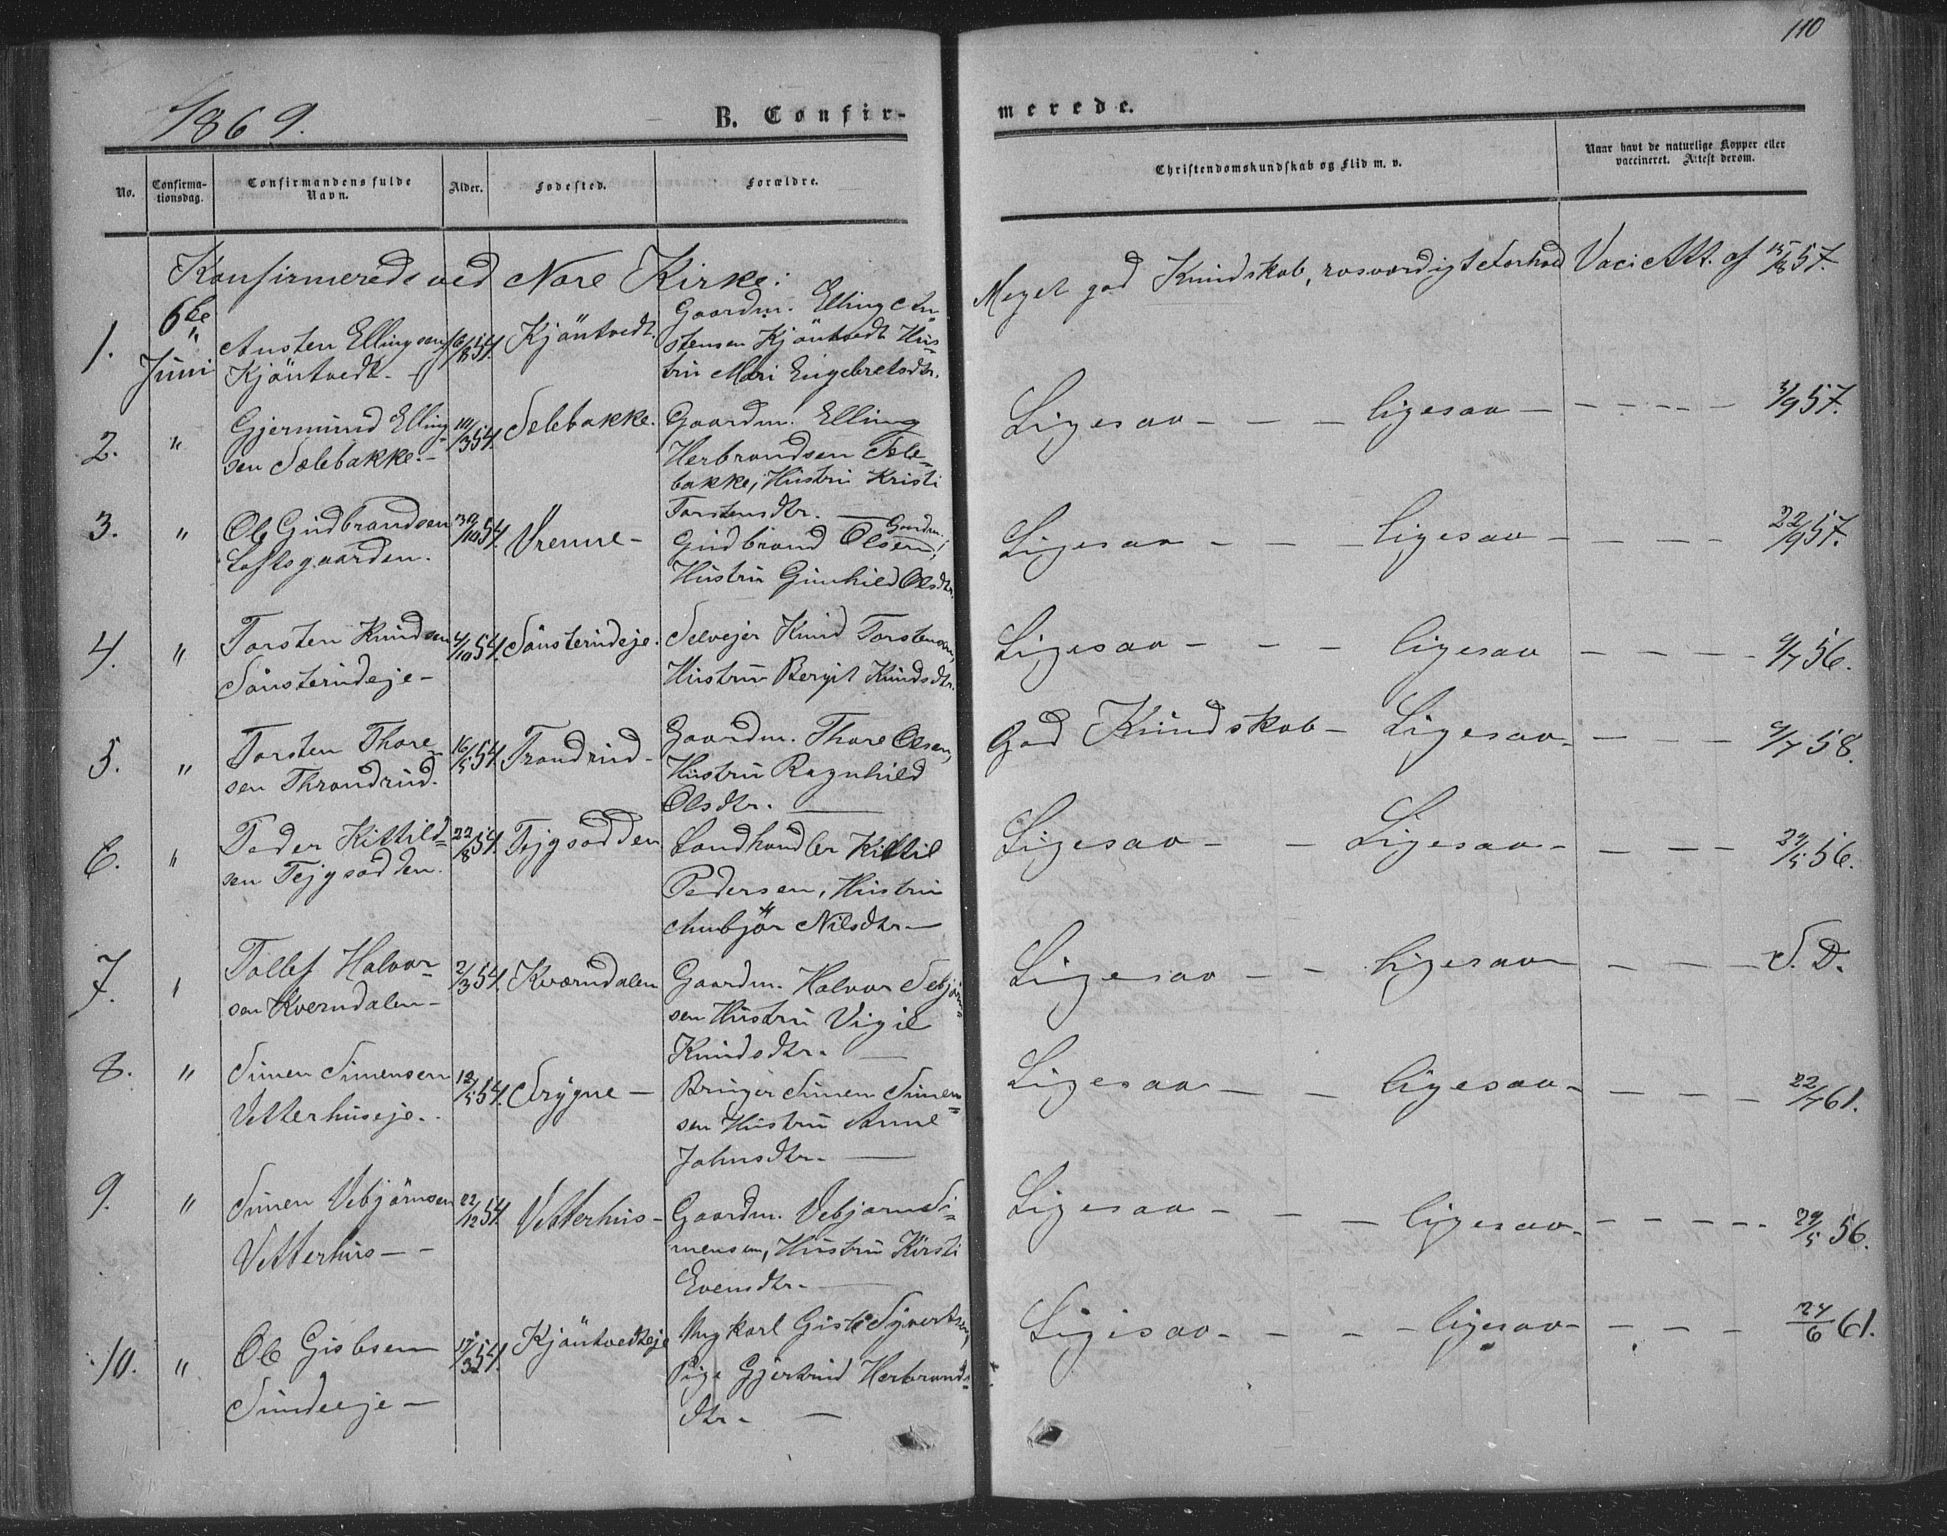 110
1869.
B. Confirmerede.
No.
Confirmationsdag.
Confirmandens fulde Navn.
Alder.
Fødested.
Forældre.
Christendomskundskab og Flid m. v.
Naar havt de naturlige Kopper eller vaccineret. Attest derom.
Konfirmerede ved Nore Kirke:
1.
6te Juni
Austen Ellingsen
Kjöntvedt. -
Kjöntvedt.
Gaardm. Elling Au-
stensen Kjöntvedt Hus-
tru Mari Engebretsdtr.
Meget god Kundskab, rosværdigt Forhold
Vaci Att. af 15/8 57.
2.
"
Gjermund Elling-
sen Sælebakke. -
10/3 54.
Sælebakke.
Gaardm. Elling
Herbrandsen Sæle-
bakke, Hustru Kristi
Torstensdtr. —
Ligesaa - - - ligesaa - - - - -
3/9 57.
3.
"
Ole Gudbrandsen
Loftsgaarden.
30/10 54.
Vrenne -
Gaardm.
Gudbrand Olsen,
Hustru Gunhild Olsdtr.
Ligesaa - - - ligesaa - - - -
22/9 57.
4.
"
Torsten Knudsen
Sönsterudeje -
4/10 54.
Sönsterudeje.
Selvejer Knud Torstensen,
Hustru Bergit Knudsdtr.
Ligesaa - - - ligesaa - - - -
9/7 56.
5.
"
Torsten Thore-
sen Throndrud.
16/5 54.
Trondrud -
Gaardm. Thore Olsen,
Hustru Ragnhild
Olsdtr. —
God Kundskab - Ligesaa - - - -
9/7 58.
6.
"
Peder Kittild-
sen Tejgsodden.
22/8 54.
Tejgsodden
Landhandler Kittil
Pedersen, Hustru
Anbjör Nilsdtr -
Ligesaa - - Ligesaa - - - -
29/5 56.
7.
"
Tollef Halvor-
sen Kverndalen -
2/3 54.
Kværndalen
Gaardm. Halvor Sebjörn-
sen Hustru Vigil
Knudsdtr. —
Ligesaa - - ligesaa - - -
S. D.
8.
"
Simen Simensen
Vetterhuseje.
12/5 54.
Brÿgne -
Bruger Simen Simen-
sen Hustru Anne
Johnsdtr. —
Ligesaa - - - ligesaa - - - -
22/7 61.
9.
"
Simen Vebjörnsen
Vetterhus - -
22/12 54.
Vetterhus -
Gaardm. Vebjörn Si-
mensen, Hustru Kirsti
Evensdtr. —
Ligesaa - - - ligesaa - - - - -
29/5 56.
10.
"
Ole Gislesen
Sundeeje -
17/3 54.
Kjöntvedteje
Ungkarl Gisle Syvertsen,
Pige Gjertrud Herbrands-
dtr. —
Ligesaa - - - - ligesaa - - - -
24/6 61.